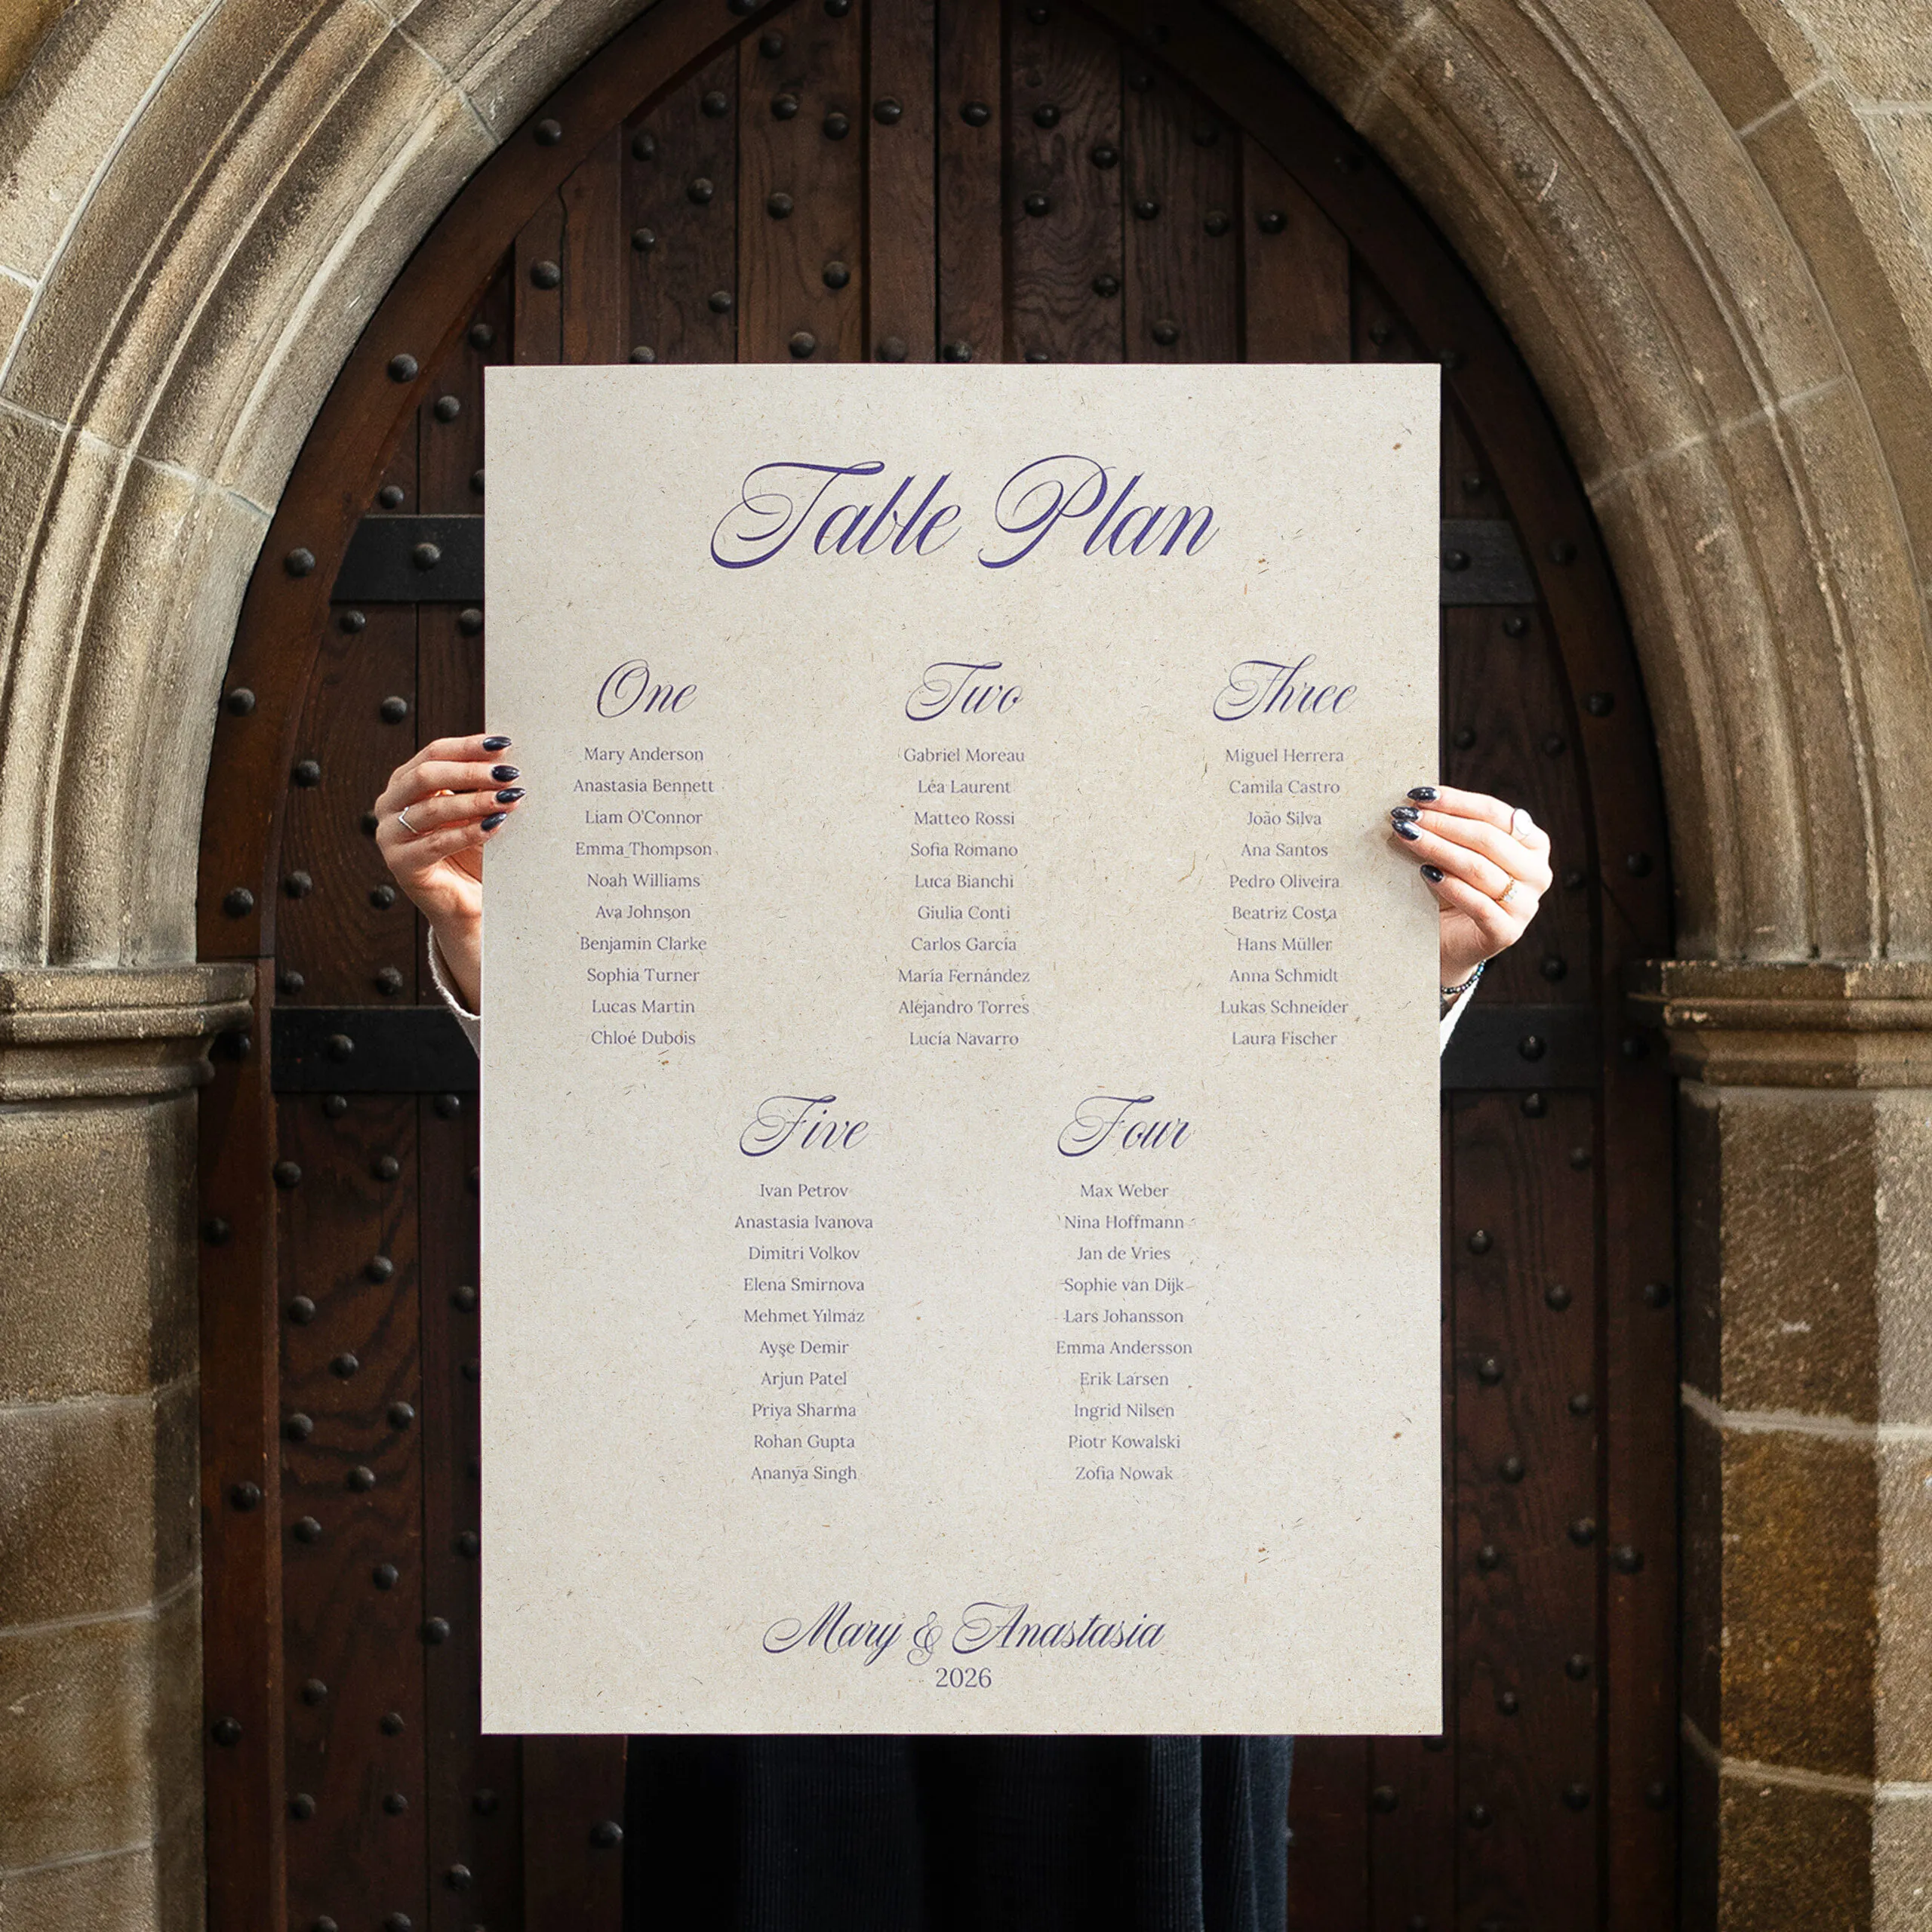 Table Plan
One
Mary Anderson
Anastasia Bennett
Liam O'Connor
Emma Thompson
Noah Williams
Ava Johnson
Benjamin Clarke
Sophia Turner
Lucas Martin
Chloé Dubois
Two
Gabriel Moreau
Léa Laurent
Matteo Rossi
Sofia Romano
Luca Bianchi
Giulia Conti
Carlos García
María Fernández
Alejandro Torres
Lucía Navarro
Three
Miguel Herrera
Camila Castro
João Silva
Ana Santos
Pedro Oliveira
Beatriz Costa
Hans Müller
Anna Schmidt
Lukas Schneider
Laura Fischer
Five
Ivan Petrov
Anastasia Ivanova
Dimitri Volkov
Elena Smirnova
Mehmet Yılmaz
Ayşe Demir
Arjun Patel
Priya Sharma
Rohan Gupta
Ananya Singh
Four
Max Weber
Nina Hoffmann
Jan de Vries
Sophie van Dijk
Lars Johansson
Emma Andersson
Erik Larsen
Ingrid Nilsen
Piotr Kowalski
Zofia Nowak
Mary & Anastasia
2026